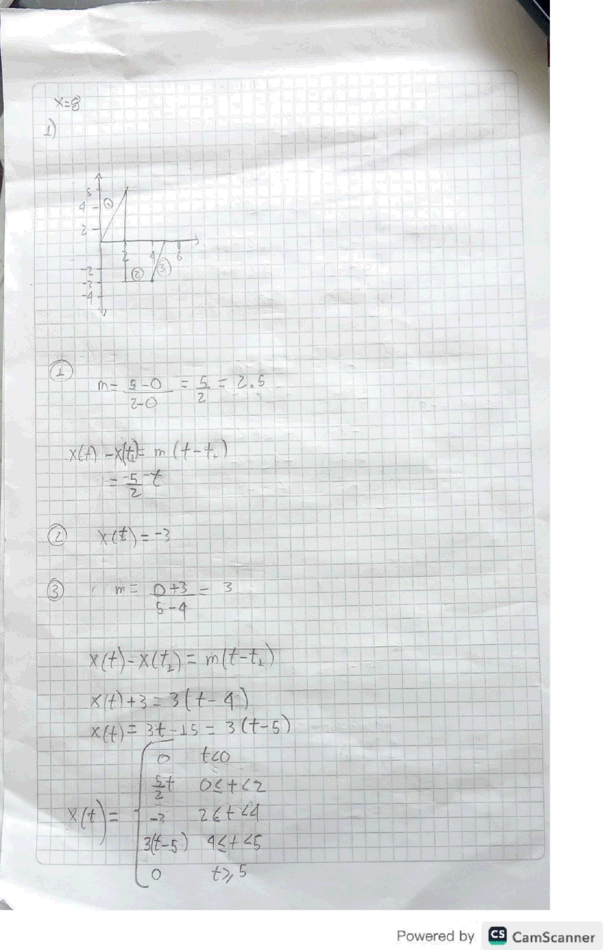 x=8
1)
5
4
2
①
2
4
6
-2
-3
-4
②
③
① m= 5-0/2-0 = 5/2 = 2.5
x(t) -x(t₁)= m (t-t₁)
= 5/2 t
② x(t) = -3
③ m = 0+3/5-4 = 3
x(t)-x(t₁) = m(t-t₁)
x(t)+3 = 3(t-4)
x(t) = 3t-15 = 3(t-5)
0 t<0
5/2 t 0≤t<2
x(t)= -3 2≤t<4
3(t-5) 4≤t<5
0 t≥5
Powered by CS CamScanner